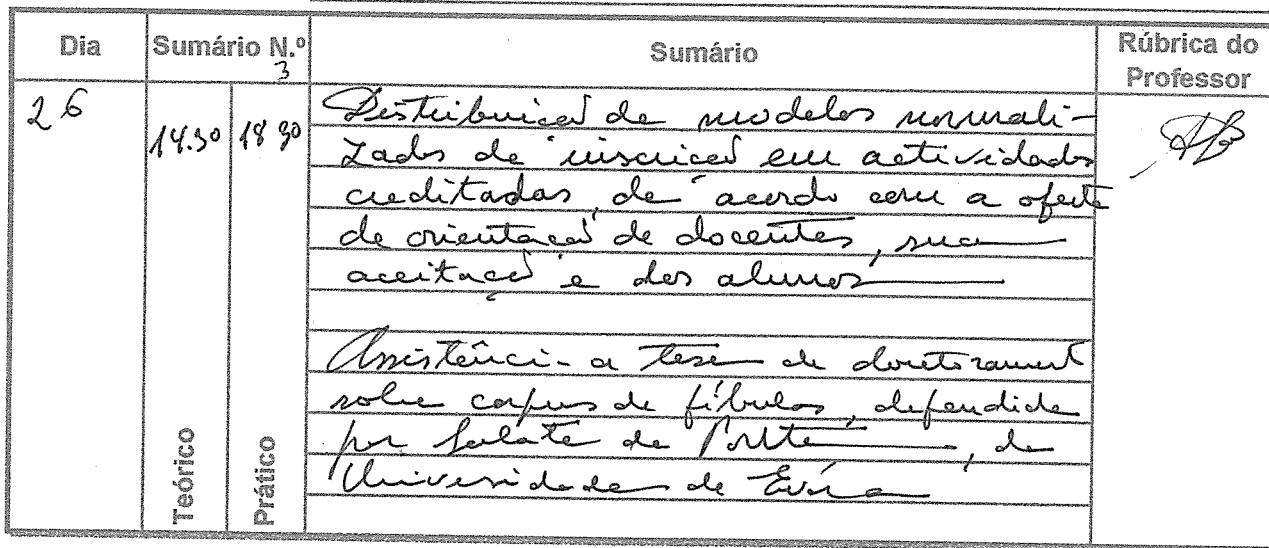 Dia Sumário N.º Sumário Rúbrica do Professor
3
26 14.30 18 30 Distribuição de modelos normali-
zados de inscrição em actividades
creditadas, de acordo com a oferta
de orientação de docentes, sua
aceitação e dos alunos
Assistência a tese de doutorament
sobre corpus de fíbulas, defendida
por de Ponte, da
Universidade de Évora
Teórico
Prático